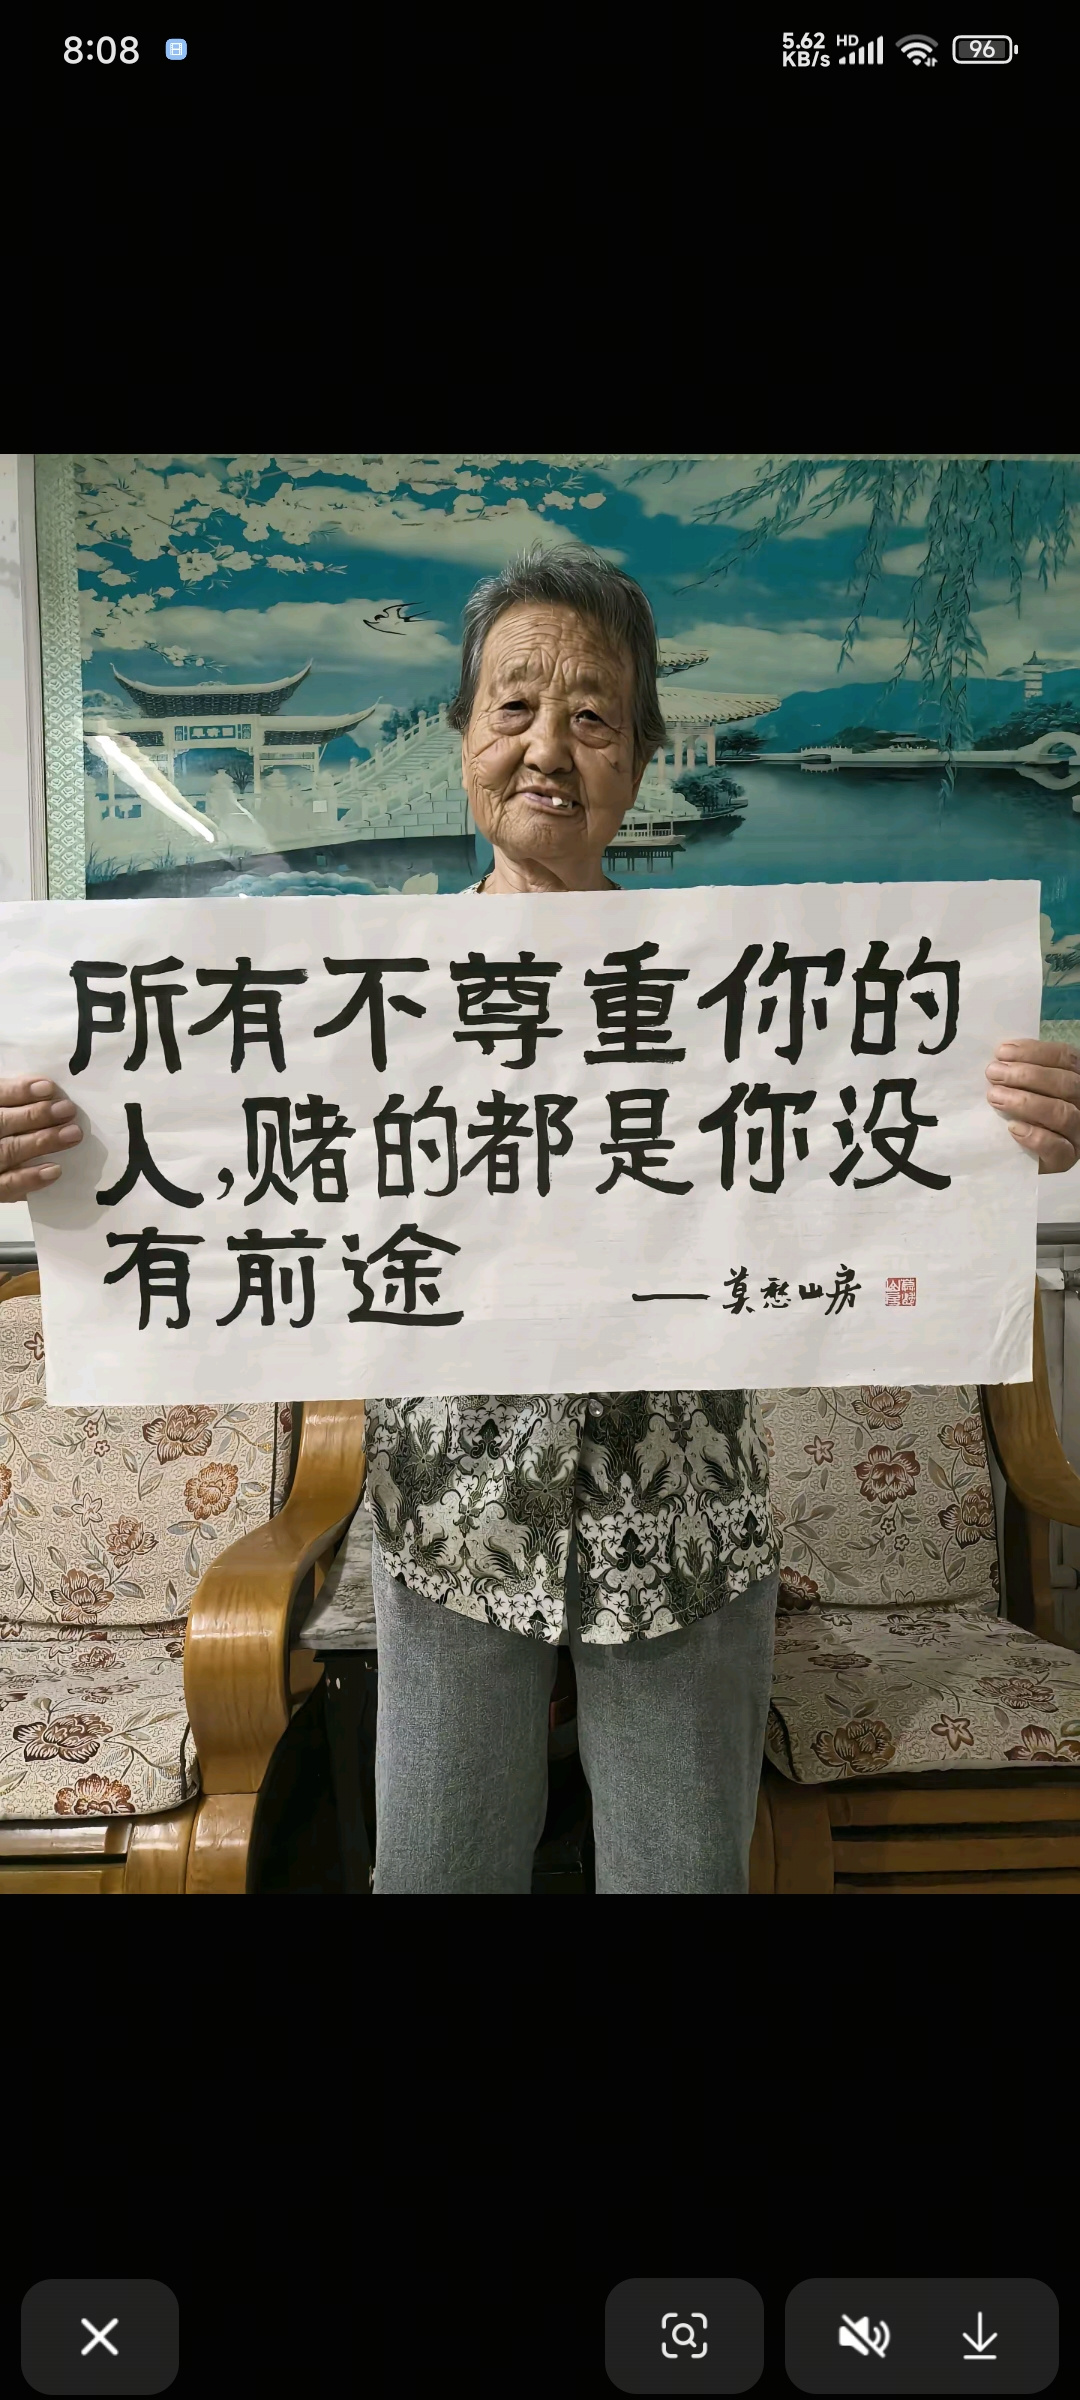 8:08
5.62 KB/s
HD
96
所有不尊重你的
人,赌的都是你没
有前途
——莫愁山房